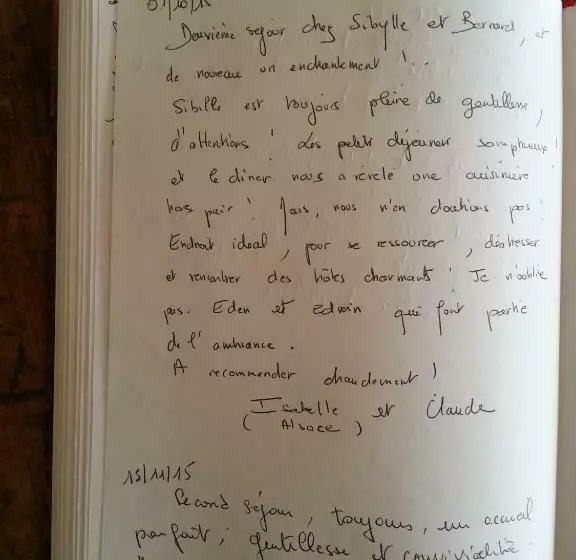 01/10/15
Deuxième séjour chez Sibylle et Bernard, et
de nouveau un enchantement !..
Sibille est toujours pleine de gentillesse,
d'attentions ! Les petits déjeuners somptueux !
et le dîner nous a révélé une cuisinière
hors pair ! Mais, nous n'en doutions pas !
Endroit idéal, pour se ressourcer, déstresser
et rencontrer des hôtes charmants ! Je n'oublie
pas. Eden et Edwin qui font partie
de l'ambiance.
A recommender chaudement !
Isabelle et Claude
(Alsace)
15/11/15
Second séjour, toujours, un accueil
parfait, gentillesse et convivialité